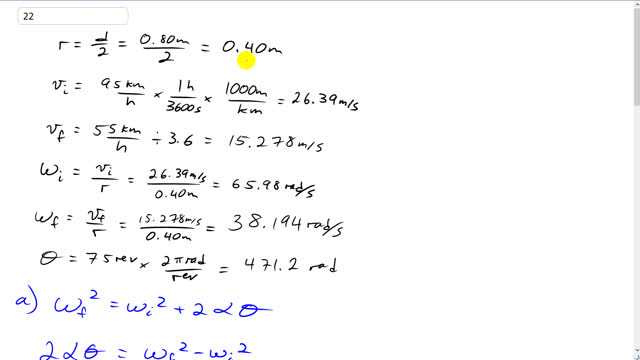 22
r = d/2 = 0.80m/2 = 0.40m
v_i = 95 km/h × 1h/3600s × 1000m/km = 26.39 m/s
v_f = 55 km/h ÷ 3.6 = 15.278 m/s
ω_i = v_i/r = 26.39 m/s/0.40m = 65.98 rad/s
ω_f = v_f/r = 15.278 m/s/0.40m = 38.194 rad/s
θ = 75 rev × 2π rad/rev = 471.2 rad
a) ω_f² = ω_i² + 2αθ
2αθ = ω_f² - ω_i²